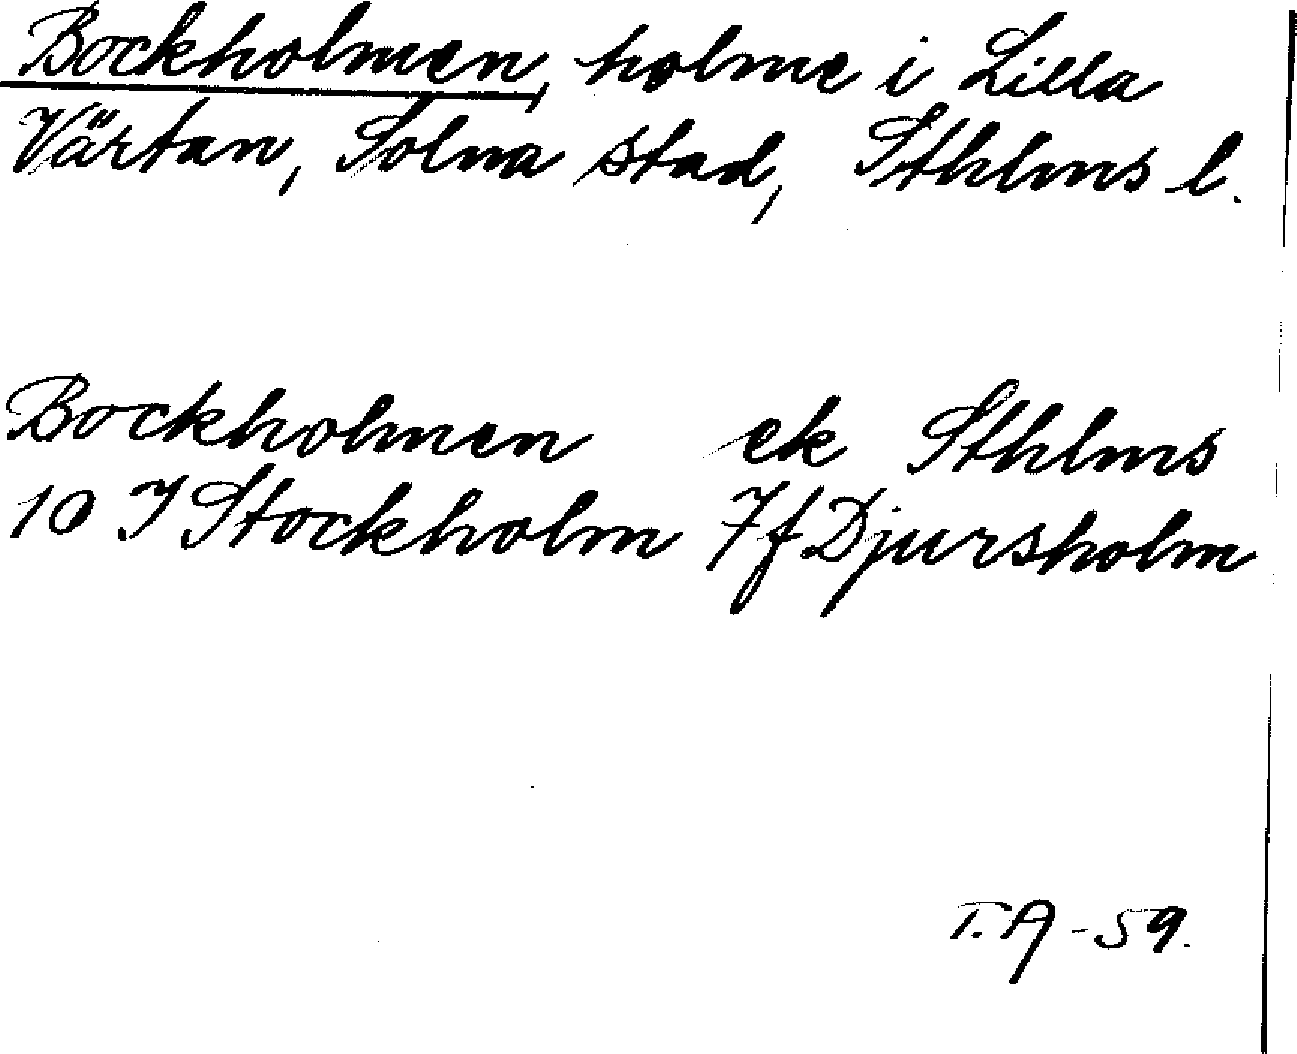 Bockholmen, holme i Lilla
Värtan, Solna stad, Sthlms l.
Bockholmen ek Sthlms
10 I Stockholm 7f Djursholm
T.A -59.